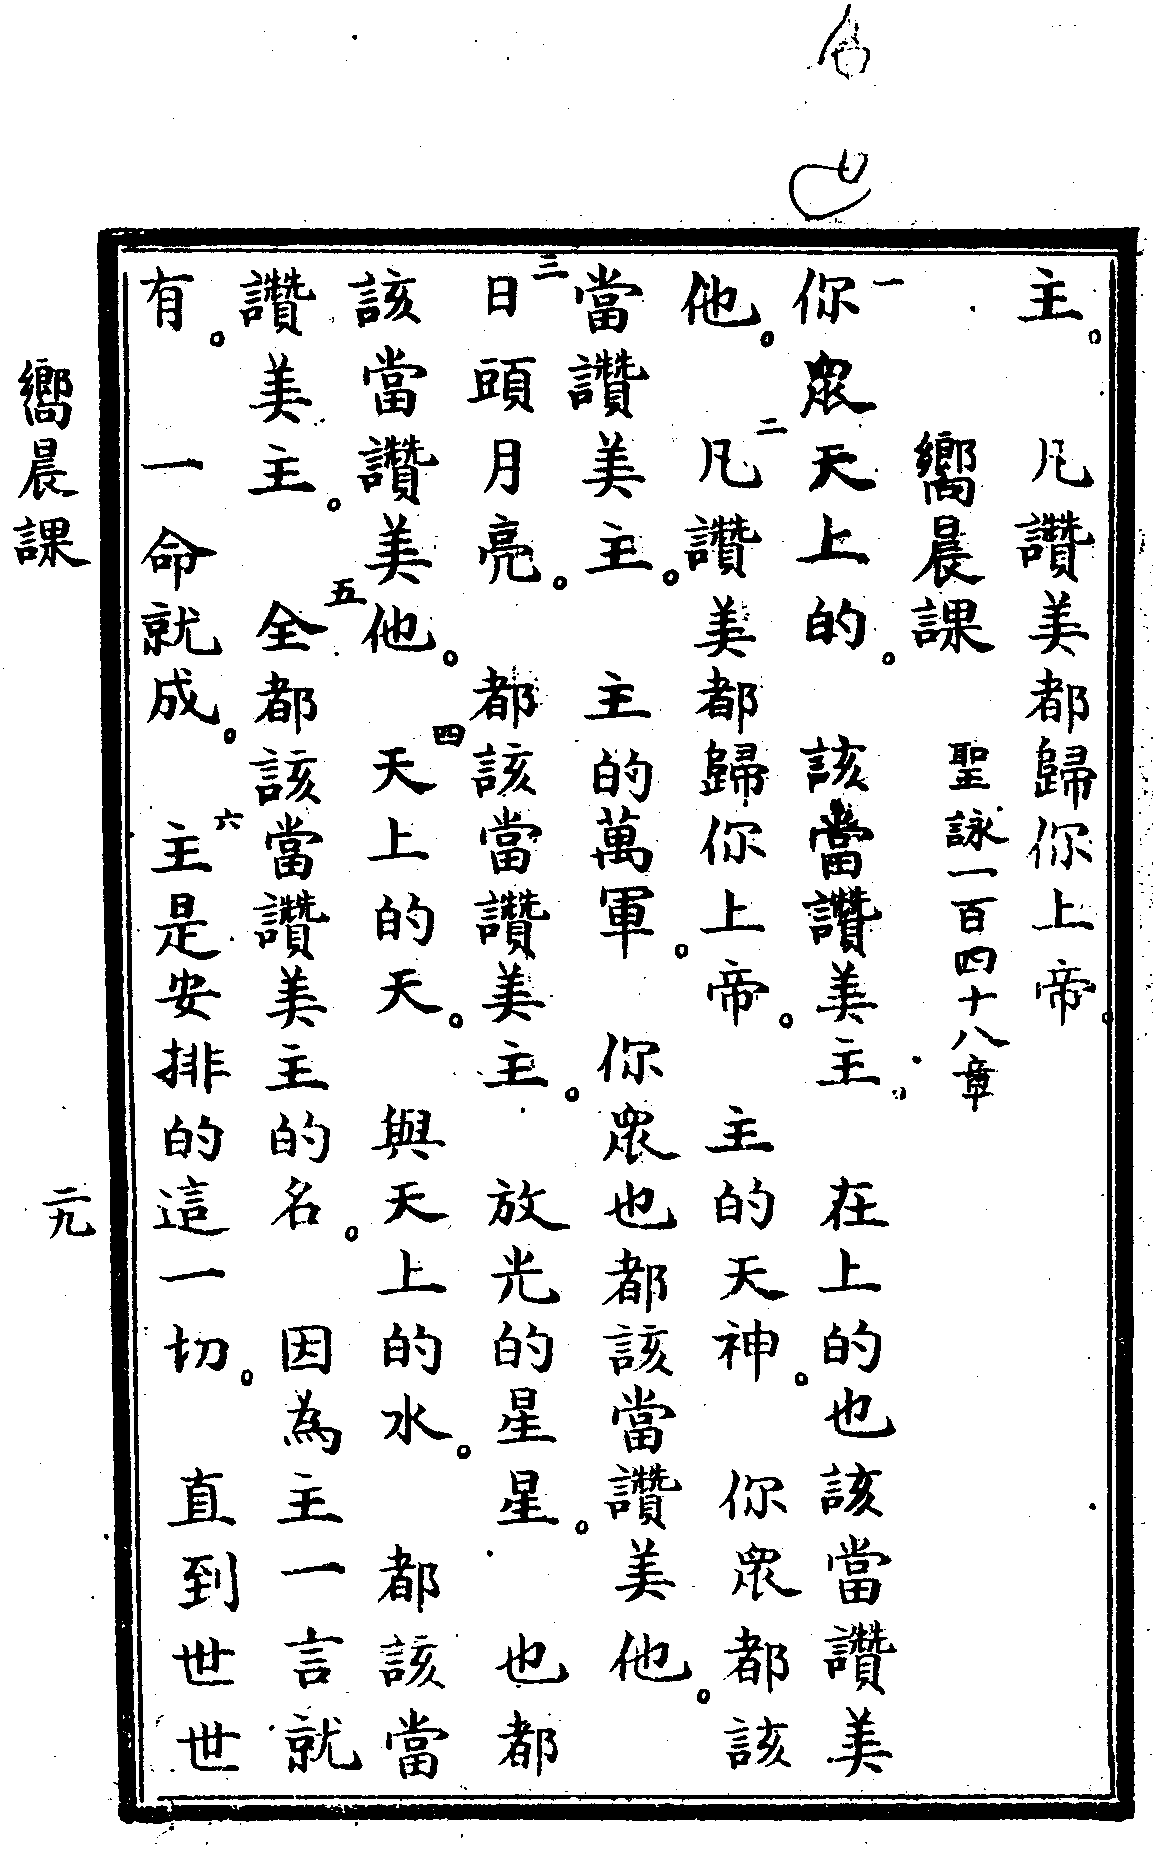 主。凡讚美都歸你上帝。
嚮晨課 聖詠一百四十八章
一你衆天上的。該當讚美主。在上的也該當讚美
他。二凡讚美都歸你上帝。主的天神。你衆都該
當讚美主。主的萬軍。你衆也都該當讚美他。
三日頭月亮。都該當讚美主。放光的星星。也都
該當讚美他。四天上的天。與天上的水。都該當
讚美主。五全都該當讚美主的名。因為主一言就
有。一命就成。六主是安排的這一切。直到世世
嚮晨課
二九